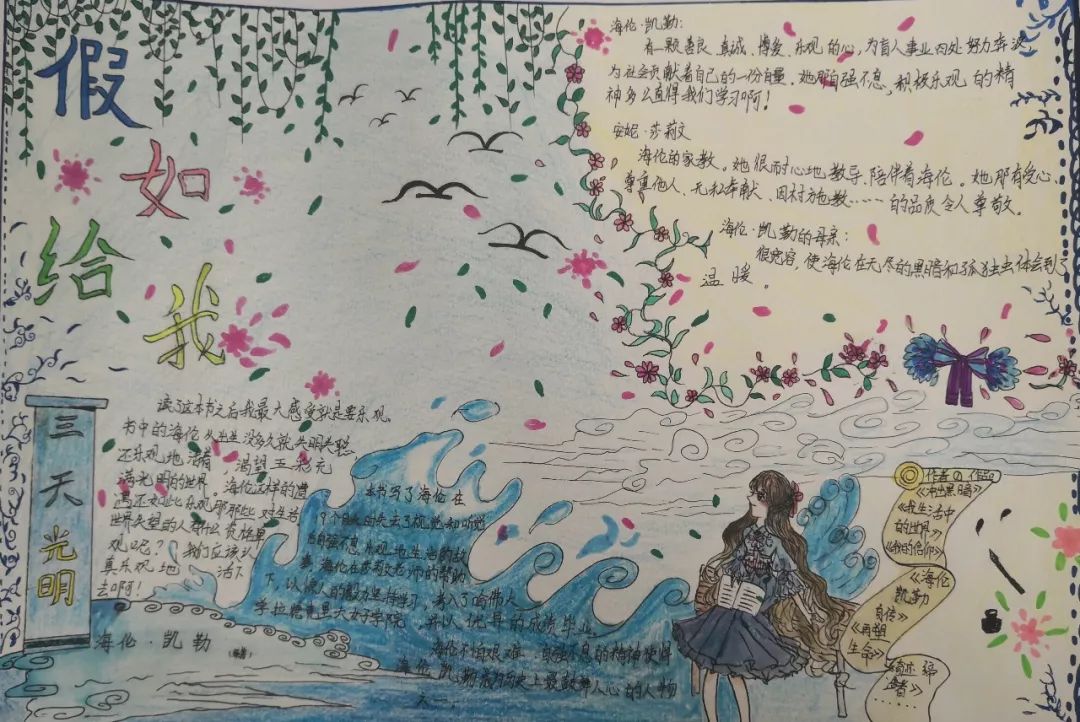 假如给我
三天光明
海伦·凯勒
海伦·凯勒:
有一颗善良、真诚、博爱、乐观的心,为盲人事业四处努力奔波
为社会贡献着自己的一份力量。她那自强不息,积极乐观的精
神多么值得我们学习啊!
安妮·莎莉文
海伦的家教。她很耐心地教导、陪伴着海伦。她那有爱心、
尊重他人、无私奉献、因材施教……的品质令人尊敬。
海伦·凯勒的母亲:
很宽容,使海伦在无尽的黑暗和孤独中体会到了
温暖。
读了这本书之后我最大感受就是要乐观
书中的海伦从出生没多久就失明失聪
还乐观地活着,渴望五彩光
满光明的世界。海伦这样的遭
遇还如此乐观,那那些对生活
世界失望的人有什么资格悲
观呢?我们应该认
真乐观地活下
去啊!
本书写了海伦在
19个月时失去了视觉和听觉
自强不息、乐观地生活的故
事,海伦在莎莉文老师的帮助
下,以惊人的毅力坚持学习,考入了哈佛大
学拉德克里夫女子学院,并以优异的成绩毕业。
海伦不怕艰难、自强不息的精神使得
海伦·凯勒成为历史上最鼓舞人心的人物
之一。
作者の《作品》
《冲出黑暗》
《我生活中
的世界》
《我的信仰》
《海伦
凯勒
自传》
《再塑
生命》